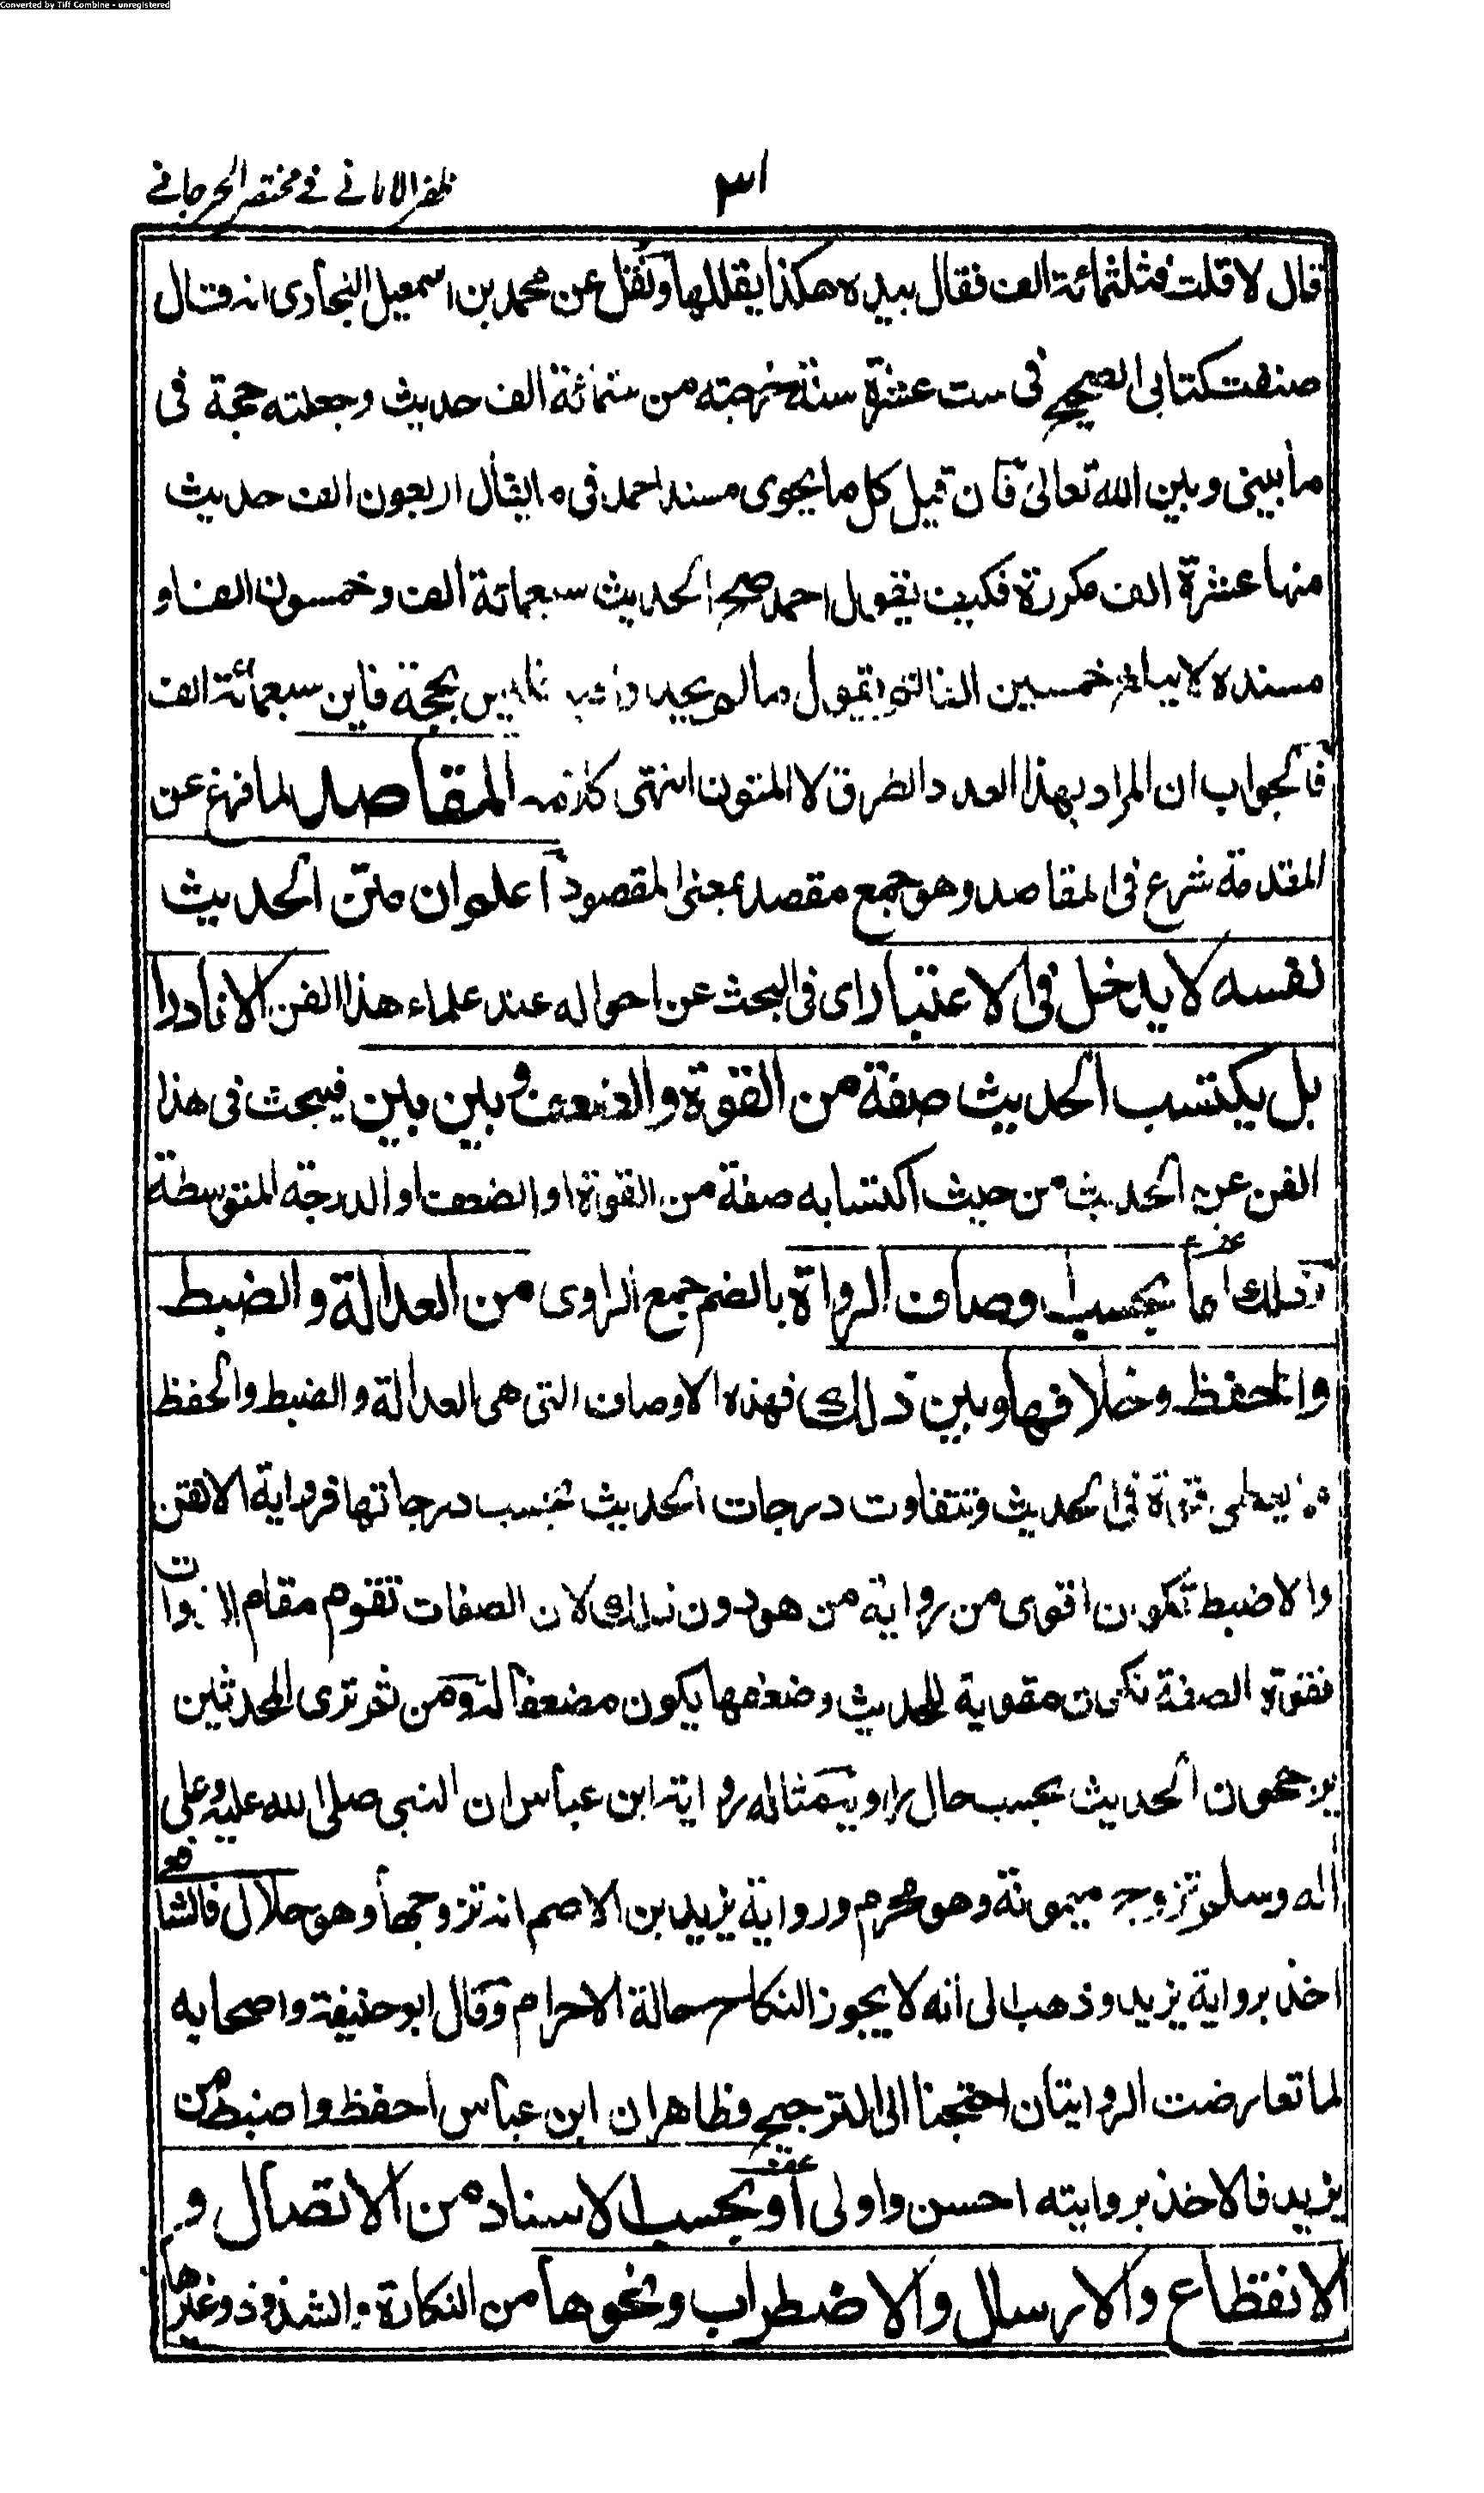 Converted by Tiff Combine - unregistered
ظفر الامانے فے مختصر الجرجانے
٣١
قال لا قلت فثلثمائة الف فقال بيده هكذا يقللها ونقل عن محمد بن اسمعيل البخارى انه قال
صنفت كتابى الصحيح فى ست عشرة سنة خرجته من ستمائة الف حديث وجعلته حجة فى
ما بينى وبين الله تعالى فان قيل كل ما يحوى مسند احمد فى ما يقال اربعون الف حديث
منها عشرة الف مكررة فكيف يقول احمد صح الحديث سبعمائة الف وخمسون الفا و
مسنده لا يبلغ خمسين الفا ثم يقول ما لم يجد فليس بحجة فاين سبعمائة الف
فالجواب ان المراد بهذا العدد الطرق لا المتون انتهى كلامه المقاصد لما فرغ عن
المقدمة شرع فى المقاصد وهو جمع مقصد بمعنى المقصود اعلم ان متن الحديث
نفسه لا يدخل فى الاعتبار اى فى البحث عن احواله عند علماء هذا الفن الا نادرا
بل يكتسب الحديث صفة من القوة والضعف وبين بين فيبحث فى هذا
الفن عن الحديث من حيث اكتسابه صفة من القوة او الضعف او الدرجة المتوسطة
وذلك اما بحسب اوصاف الرواة بالضم جمع الراوى من العدالة والضبط
والحفظ وخلافها وبين ذلك فهذه الاوصاف التى هى العدالة والضبط والحفظ
قوة فى الحديث وتتفاوت درجات الحديث بحسب درجاتها فرواية الاتقن
والاضبط تكون اقوى من رواية من هو دون ذلك لان الصفات تقوم مقام الذوات
فقوة الصفة تكون مقوية للحديث وضعفها يكون مضعفا له ومن ثم ترى المحدثين
يرجحون الحديث بحسب حال راويه مثاله رواية ابن عباس ان النبى صلى الله عليه وعلى
اله وسلم تزوج ميمونة وهو محرم ورواية يزيد بن الاصم انه تزوجها وهو حلال فالشافعے
اخذ برواية يزيد وذهب الى انه لا يجوز النكاح حالة الاحرام وقال ابو حنيفة واصحابه
لما تعارضت الروايتان احتجنا الى الترجيح وظاهر ان ابن عباس احفظ واضبط من
يزيد فالاخذ بروايته احسن واولى او بحسب الاسناد من الاتصال و
الانقطاع والارسال والاضطراب ونحوها من النكارة والشذوذ وغيرها